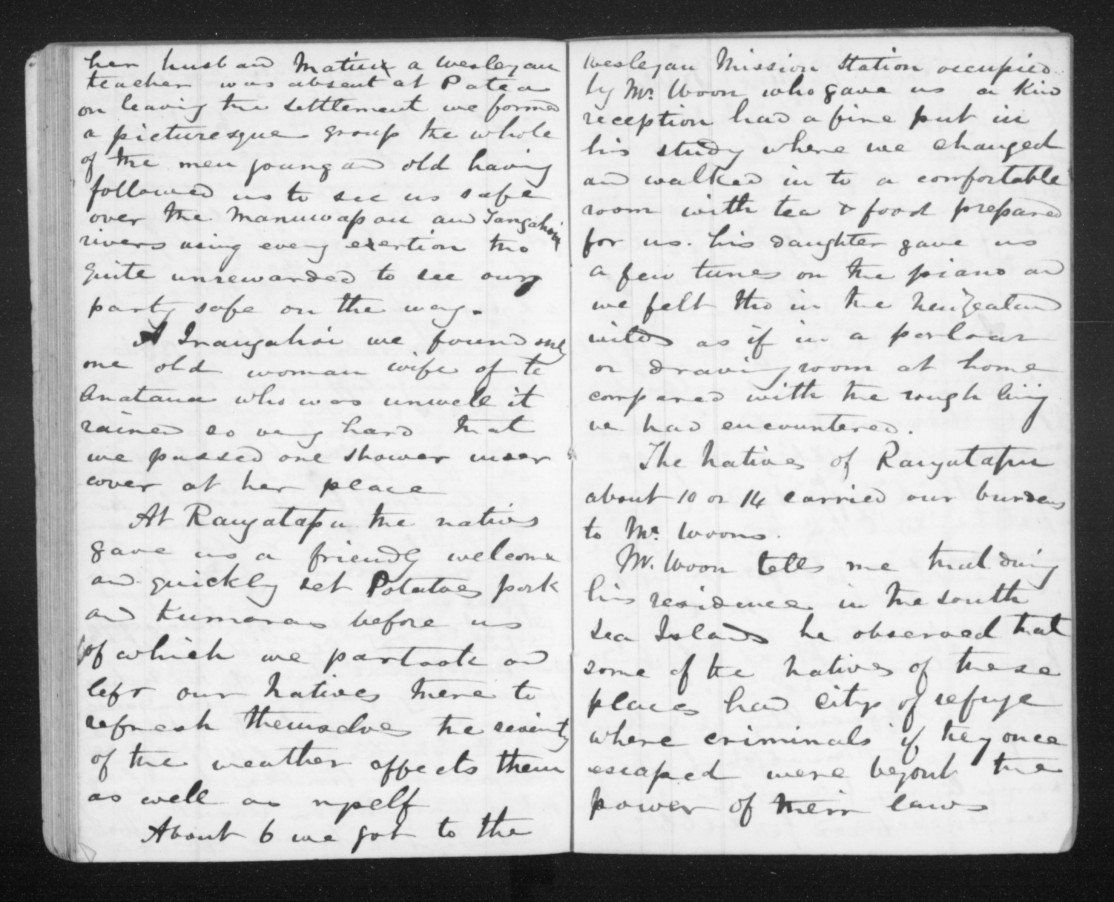 her husband Matiu a Wesleyan
teacher was absent at Patea
on leaving the settlement we formed
a picturesque group the whole
of the men young and old having
followed us to see us safe
over the Manuwapou and Tangahoi
rivers using every exertion tho
quite unrewarded to see our
party safe on the way.
At Inaugahoi we found only
one old woman wife of te
Anataua who was unwell it
rained so very hard that
we passed one shower under
cover at her place
At Rangatapu the natives
gave us a friendly welcome
and quickly set Potatoes pork
and Kumaras before us
of which we partook and
left our Natives there to
refresh themselves the
of the weather affects them
as well as myself
About 6 we got to the
Wesleyan Mission Station occupied
by Mr. Woon who gave us a kind
reception had a fine put in
his study where we changed
and walked in to a comfortable
room with tea & food prepared
for us. his daughter gave us
a few tunes on the piano and
we felt tho in the New Zealand
wilds as if in a parlour
or drawing room at home
compared with the rough living
we had encountered.
The Natives of Rangatapu
about 10 or 14 carried our burdens
to Mr. Woons.
Mr. Woon tells me that during
his residence in the South
Sea Islands he observed that
some of the Natives of these
places had citys of refuge
where criminals if they once
escaped were beyond the
power of their laws